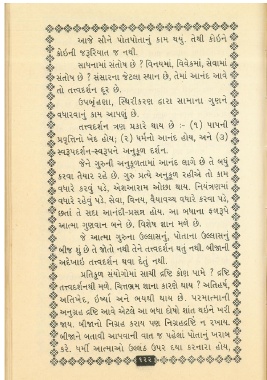 આજે સૌને પોતપોતાનું કામ થયું. તેથી કોઇને
કોઇની જરૂરિયાત જ નથી.
સાધનામાં સંતોષ છે ? વિનયમાં, વિવેકમાં, સેવામાં
સંતોષ છે ? સંસારના જેટલા સ્થાન છે, તેમાં આનંદ આવે
તો તત્ત્વદર્શન દૂર છે.
ઉપબૃંહણા, સ્થિરીકરણ દ્વારા સામાના ગુણને
વધારવાનું કામ આપણું છે.
તત્ત્વદર્શન ત્રણ પ્રકારે થાય છે :- (૧) પાપની
પ્રવૃત્તિનો ખેદ હોય; (૨) ધર્મનો આનંદ હોય, અને (૩)
સ્વરૂપદર્શન-સ્વરૂપને અનુકૂળ દર્શન.
જેને ગુરુની અનુકૂળતામાં આનંદ લાગે છે તે બધું
કરવા તૈયાર રહે છે. ગુરુ પ્રત્યે અનુકૂળ રહીએ તો કામ
વધારે કરવું પડે, એશઆરામ ઓછા થાય. નિયંત્રણમાં
વધારે રહેવું પડે. સેવા, વિનય, વૈયાવચ્ચ વધારે કરવા પડે,
છતાં તે સદા આનંદી-પ્રસન્ન હોય. આ બધાના ફળરૂપે
આત્મા ગુણવાન બને છે. વિશેષ જ્ઞાન મળે છે.
જે આત્મા ગુરુના ઉલ્લાસનું, પોતાના ઉલ્લાસનું
બીજ શું છે તે જોતો નથી તેને તત્ત્વદર્શન થતું નથી. બીજાની
અદેખાઇ તત્ત્વદર્શન થવા દેતું નથી.
પ્રતિકૂળ સંયોગોમાં સાચી દ્રષ્ટિ કોણ પામે ? દ્રષ્ટિ
તત્ત્વદર્શનથી મળે. ચિત્તભ્રમ શાના કારણે થાય ? અતિહર્ષ,
અતિખેદ, ઇર્ષ્યા અને ભયથી થાય છે. પરમાત્માની
અનુગ્રહ દ્રષ્ટિ આવે એટલે આ બધા દોષો શાંત થઇને ખરી
જાય. બીજાનો નિગ્રહ કરાય પણ નિગ્રહદ્રષ્ટિ ન રખાય.
બીજાને બતાવી આપવાની વાત જ પહેલાં પોતાનું ખરાબ
કરે. ધર્મી આત્માઓ ઉલ્લંઠ ઉપર દયા કરનારા હોય,
૧૨૨